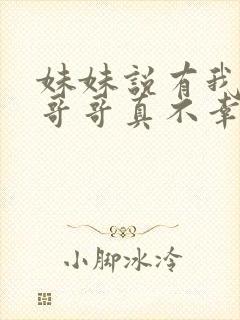 妹妹説有我
哥哥真不幸
小脚冰冷